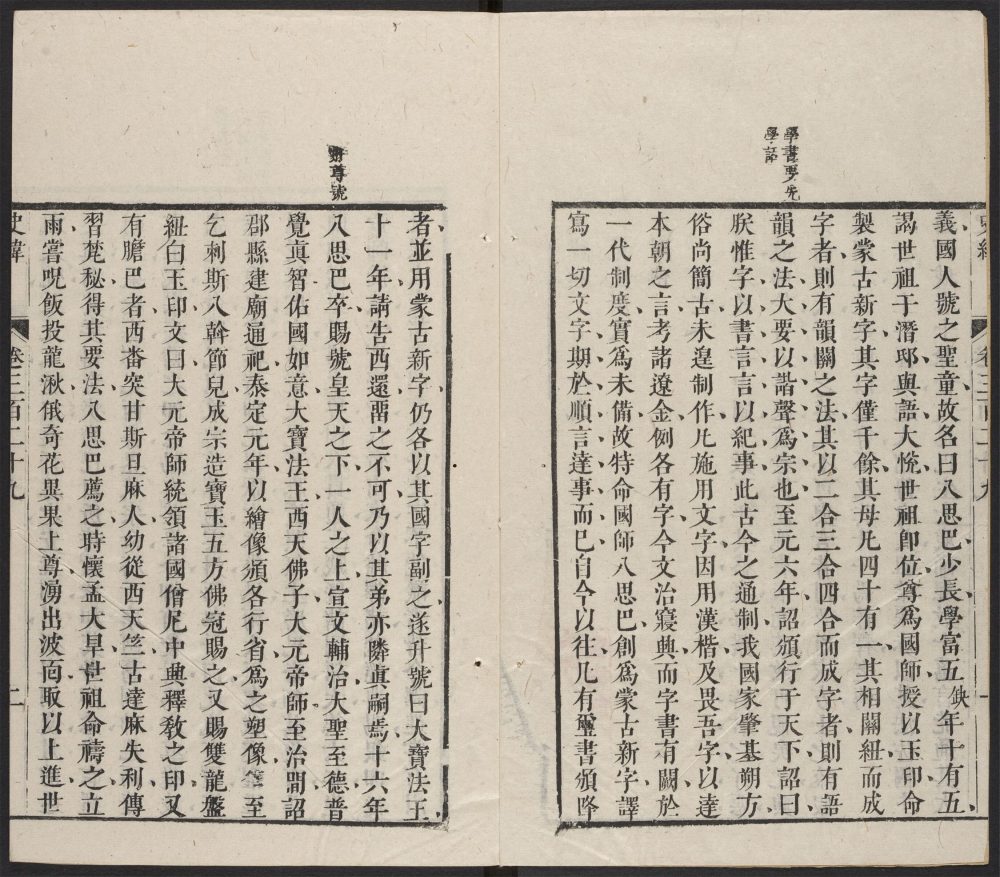 學書要先
學語
義國人號之聖童故名曰八思巴少長學富五
年十有五
謁世祖于潛邸與語大悅世祖卽位尊爲國師授以玉印命
製蒙古新字其字僅千餘其母凡四十有一其相關紐而成
字者則有韻關之法其以二合三合四合而成字者則有語
韻之法大要以諧聲爲宗也至元六年詔頒行于天下詔曰
朕惟字以書言言以紀事此古今之通制我國家肇基朔方
俗尚簡古未遑制作凡施用文字因用漢楷及畏吾字以達
本朝之言考諸遼金例各有字今文治寖興而字書有闕於
一代制度實爲未備故特命國師八思巴創爲蒙古新字譯
寫一切文字期於順言達事而已自今以往凡有璽書頒降
尊號
者並用蒙古新字仍各以其國字副之遂升號曰大寶法王
十一年請告西還畱之不可乃以其弟亦隣眞嗣焉十六年
八思巴卒賜號皇天之下一人之上宣文輔治大聖至德普
覺眞智佑國如意大寶法王西天佛子大元帝師至治間詔
郡縣建廟通祀泰定元年以繪像頒各行省爲之塑像云至
乞剌斯八斡節兒成宗造寶玉五方佛冠賜之又賜雙龍盤
紐白玉印文曰大元帝師統領諸國僧尼中興釋敎之印又
有膽巴者西番突甘斯旦麻人幼從西天竺古達麻失利傳
習梵秘得其要法八思巴薦之時懷孟大旱世祖命禱之立
雨嘗呪飯投龍湫俄奇花異果上尊湧出波面取以上進世
史緯
卷三百二十九
二